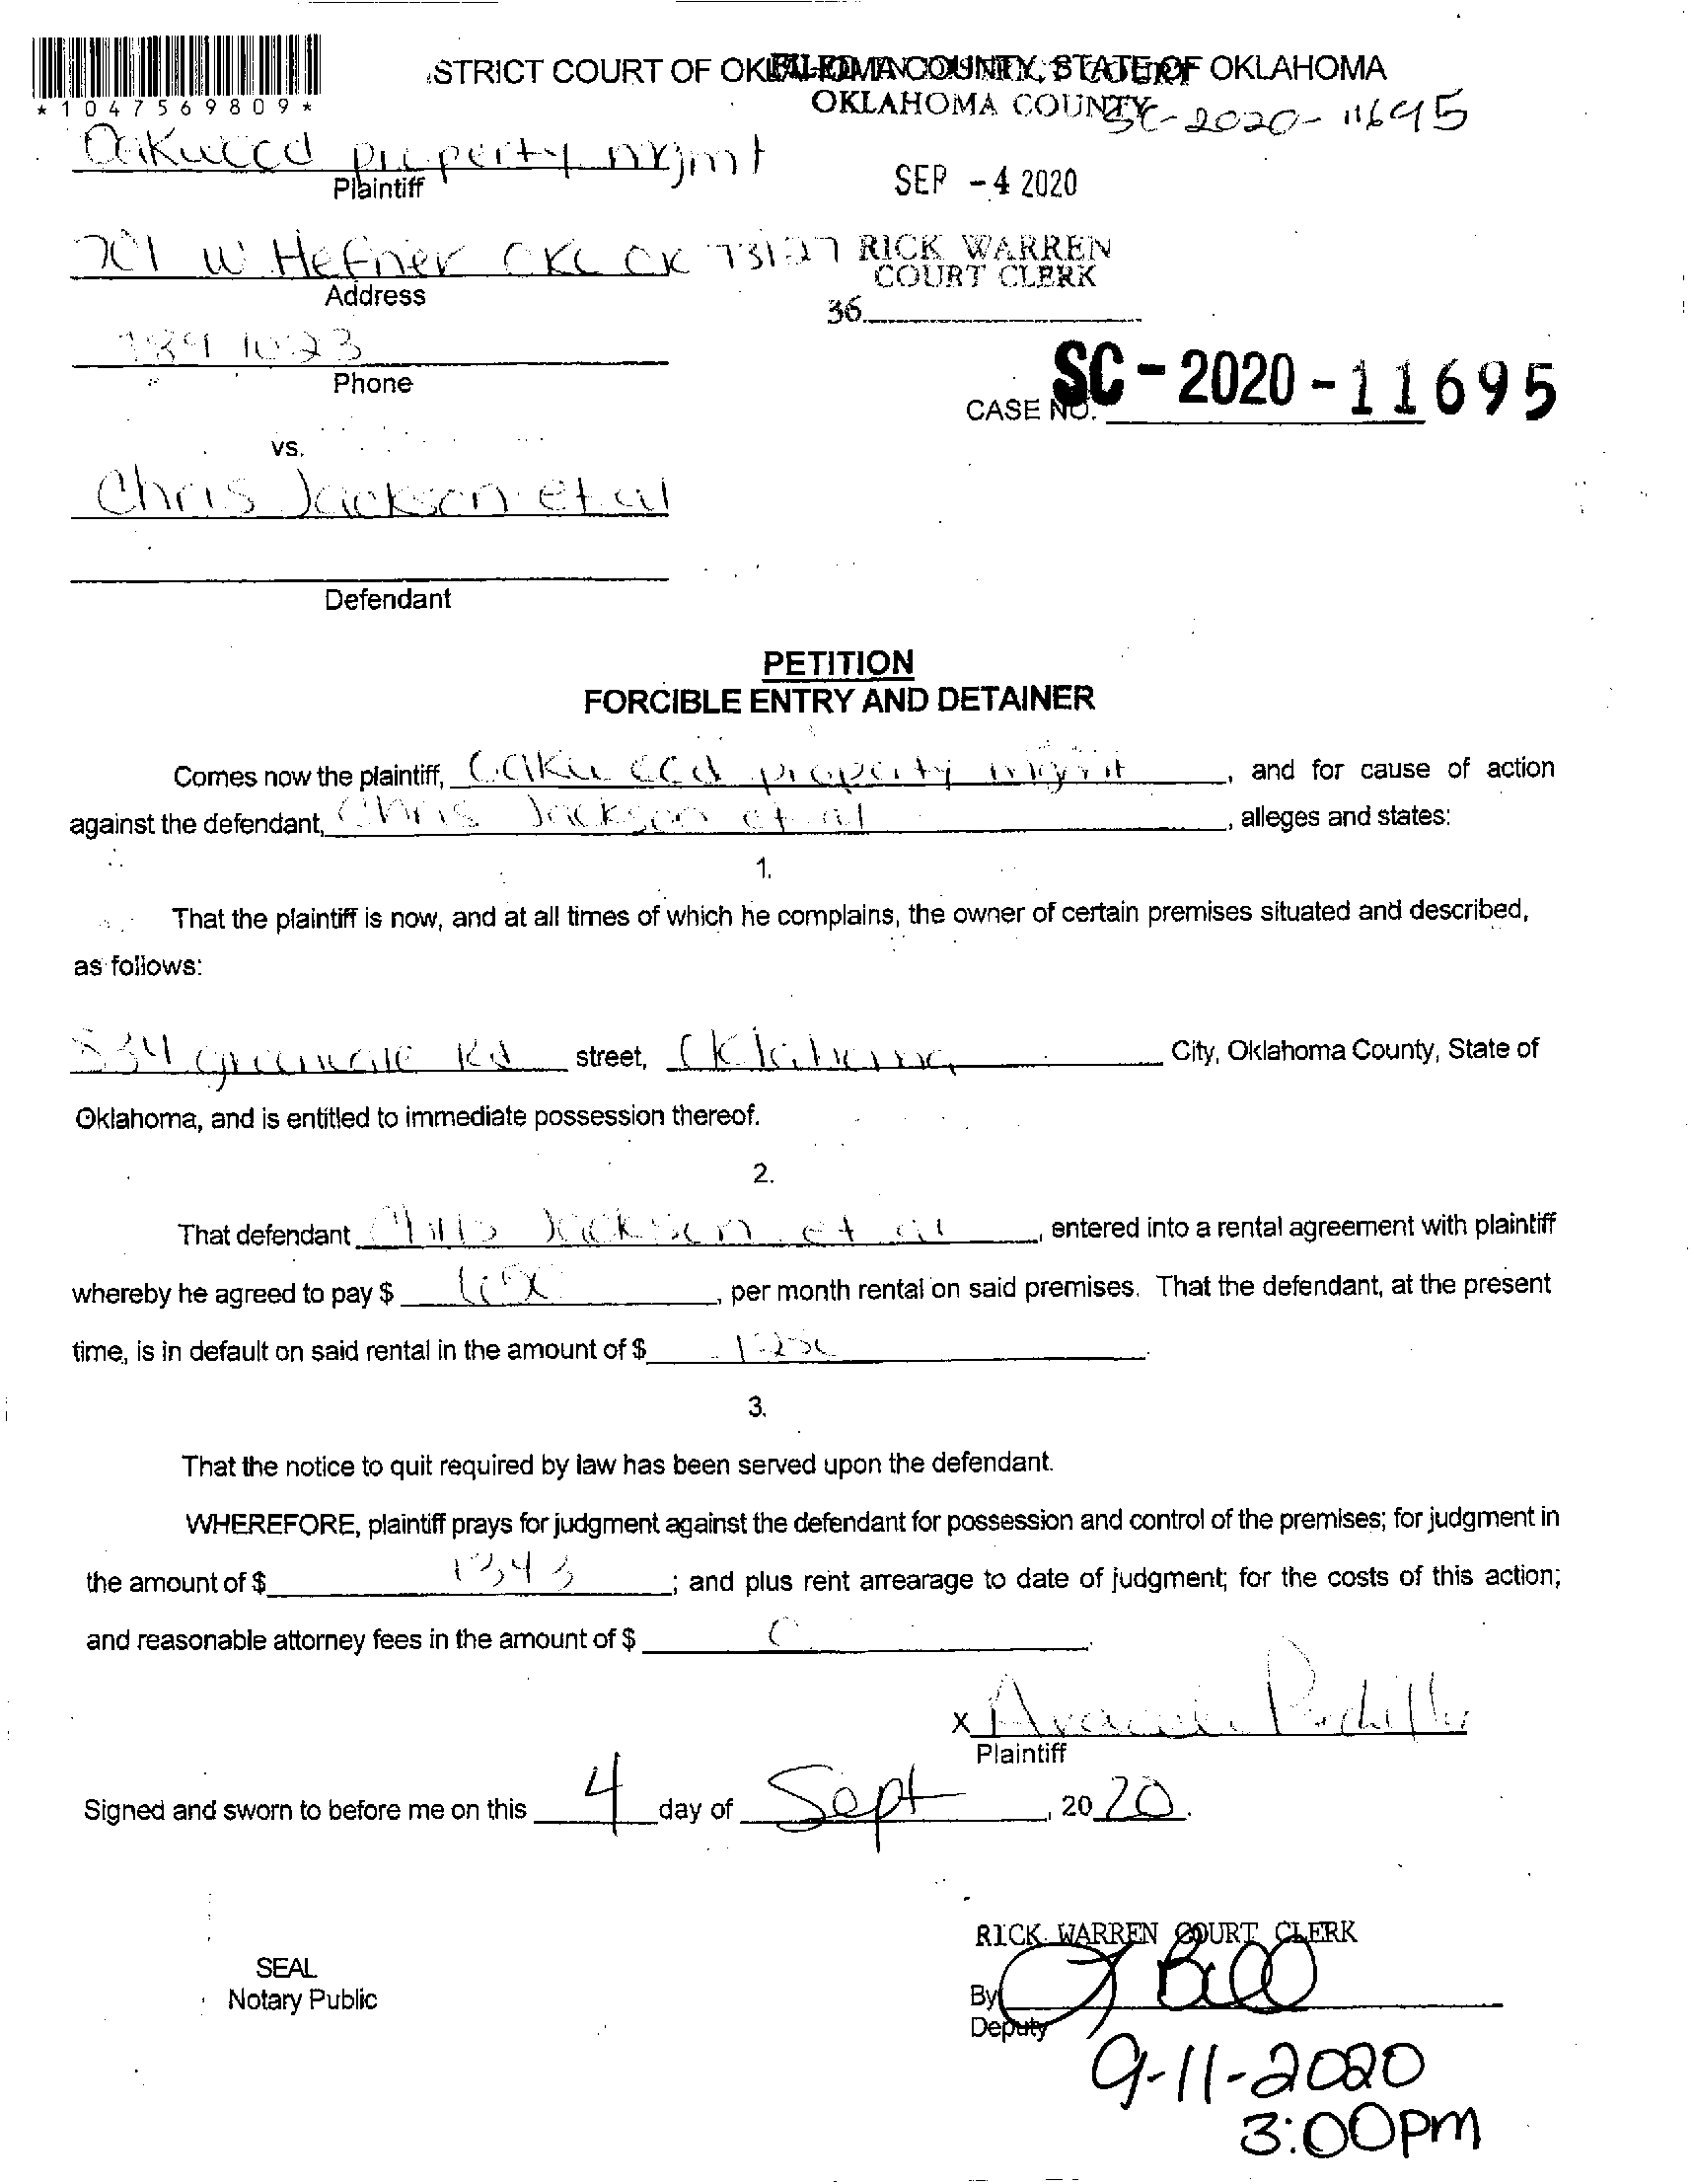 *1047569809*
STRICT COURT OF OKLAHOMA COUNTY, STATE OF OKLAHOMA
OKLAHOMA COUNTY
SC-2020-11695
Oakwood property mgmt
Plaintiff
SEP -4 2020
701 W Hefner OKC OK 73127
RICK WARREN
COURT CLERK
Address
36
789 1023
Phone
CASE NO. SC-2020-11695
vs.
Chris Jackson et al
Defendant
PETITION
FORCIBLE ENTRY AND DETAINER
Comes now the plaintiff, Oakwood property mgmt, and for cause of action
against the defendant, Chris Jackson et al, alleges and states:
1.
That the plaintiff is now, and at all times of which he complains, the owner of certain premises situated and described,
as follows:
Rd street, Oklahoma City, Oklahoma County, State of
Oklahoma, and is entitled to immediate possession thereof.
2.
That defendant Chris Jackson et al, entered into a rental agreement with plaintiff
whereby he agreed to pay $, per month rental on said premises. That the defendant, at the present
time, is in default on said rental in the amount of $
3.
That the notice to quit required by law has been served upon the defendant.
WHEREFORE, plaintiff prays for judgment against the defendant for possession and control of the premises; for judgment in
the amount of $ 1343; and plus rent arrearage to date of judgment; for the costs of this action;
and reasonable attorney fees in the amount of $
X
Plaintiff
Signed and sworn to before me on this 4 day of Sept, 20 20.
RICK WARREN COURT CLERK
SEAL
Notary Public
By
Deputy
9-11-2020
3:00pm